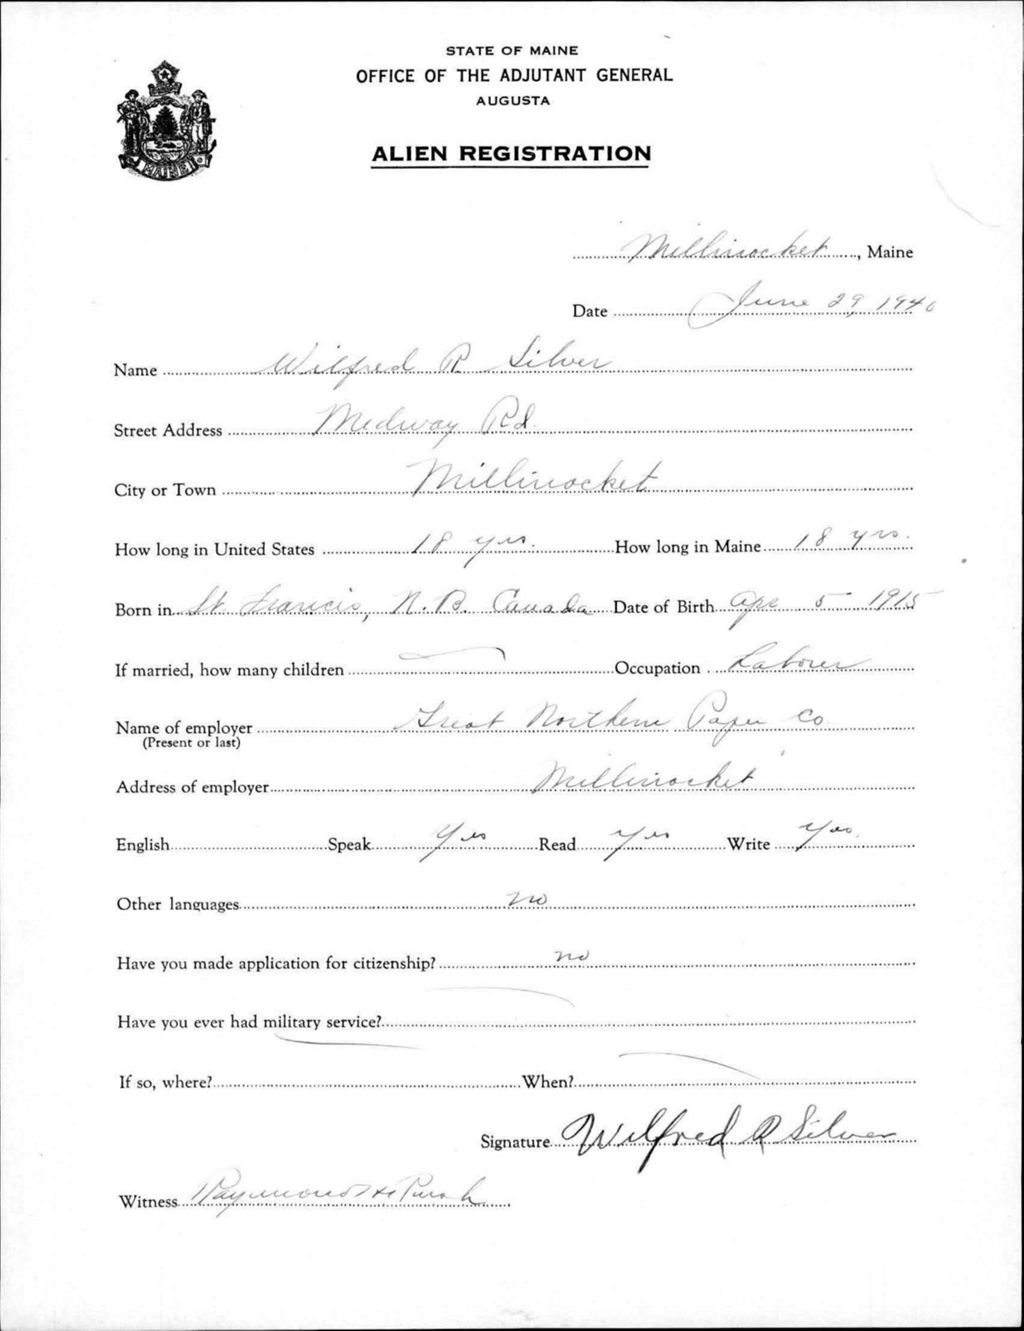 STATE OF MAINE
OFFICE OF THE ADJUTANT GENERAL
AUGUSTA
ALIEN REGISTRATION
MAINE
Millinocket, Maine
Date June 29, 1940
Name Wilfred R Silver
Street Address Medway Rd.
City or Town Millinocket
How long in United States 18 yrs. How long in Maine 18 yrs.
Born in St. Francis, N.B. Canada Date of Birth Apr 5 1915
If married, how many children Occupation Laborer
Name of employer Great Northern Paper Co.
(Present or last)
Address of employer Millinocket
English Speak Yes Read Yes Write Yes
Other languages no
Have you made application for citizenship? no
Have you ever had military service?
If so, where? When?
Signature Wilfred R Silver
Witness Raymond H